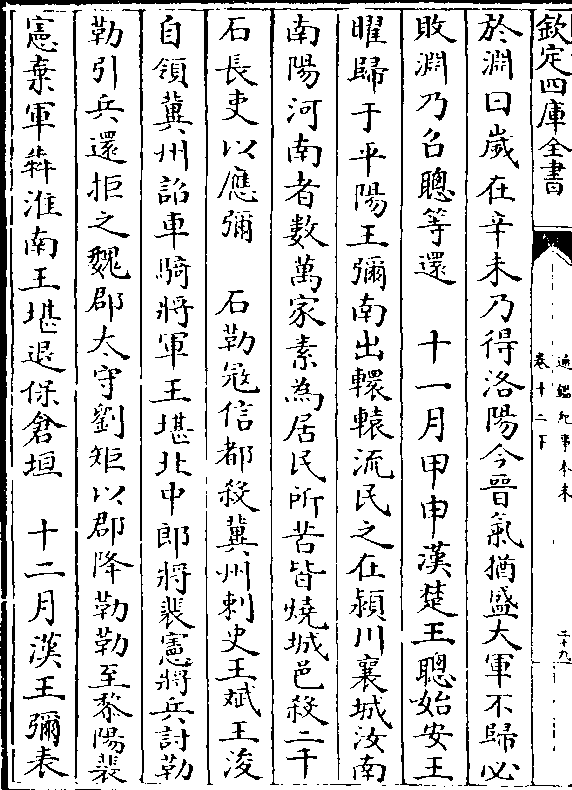 欽定四庫全書
通鑑紀事本末
卷十二下
二十九
於淵曰歲在辛未乃得洛陽今晉氣猶盛大軍不歸必
敗淵乃召聰等還 十一月甲申漢楚王聰始安王
曜歸于平陽王彌南出轘轅流民之在潁川襄城汝南
南陽河南者數萬家素為居民所苦皆燒城邑殺二千
石長吏以應彌 石勒㓂信都殺冀州刺史王斌王浚
自領冀州詔車騎將軍王堪北中郎將裴憲將兵討勒
勒引兵還拒之魏郡太守劉矩以郡降勒勒至黎陽裴
憲棄軍犇淮南王堪退保倉垣 十二月漢王彌表